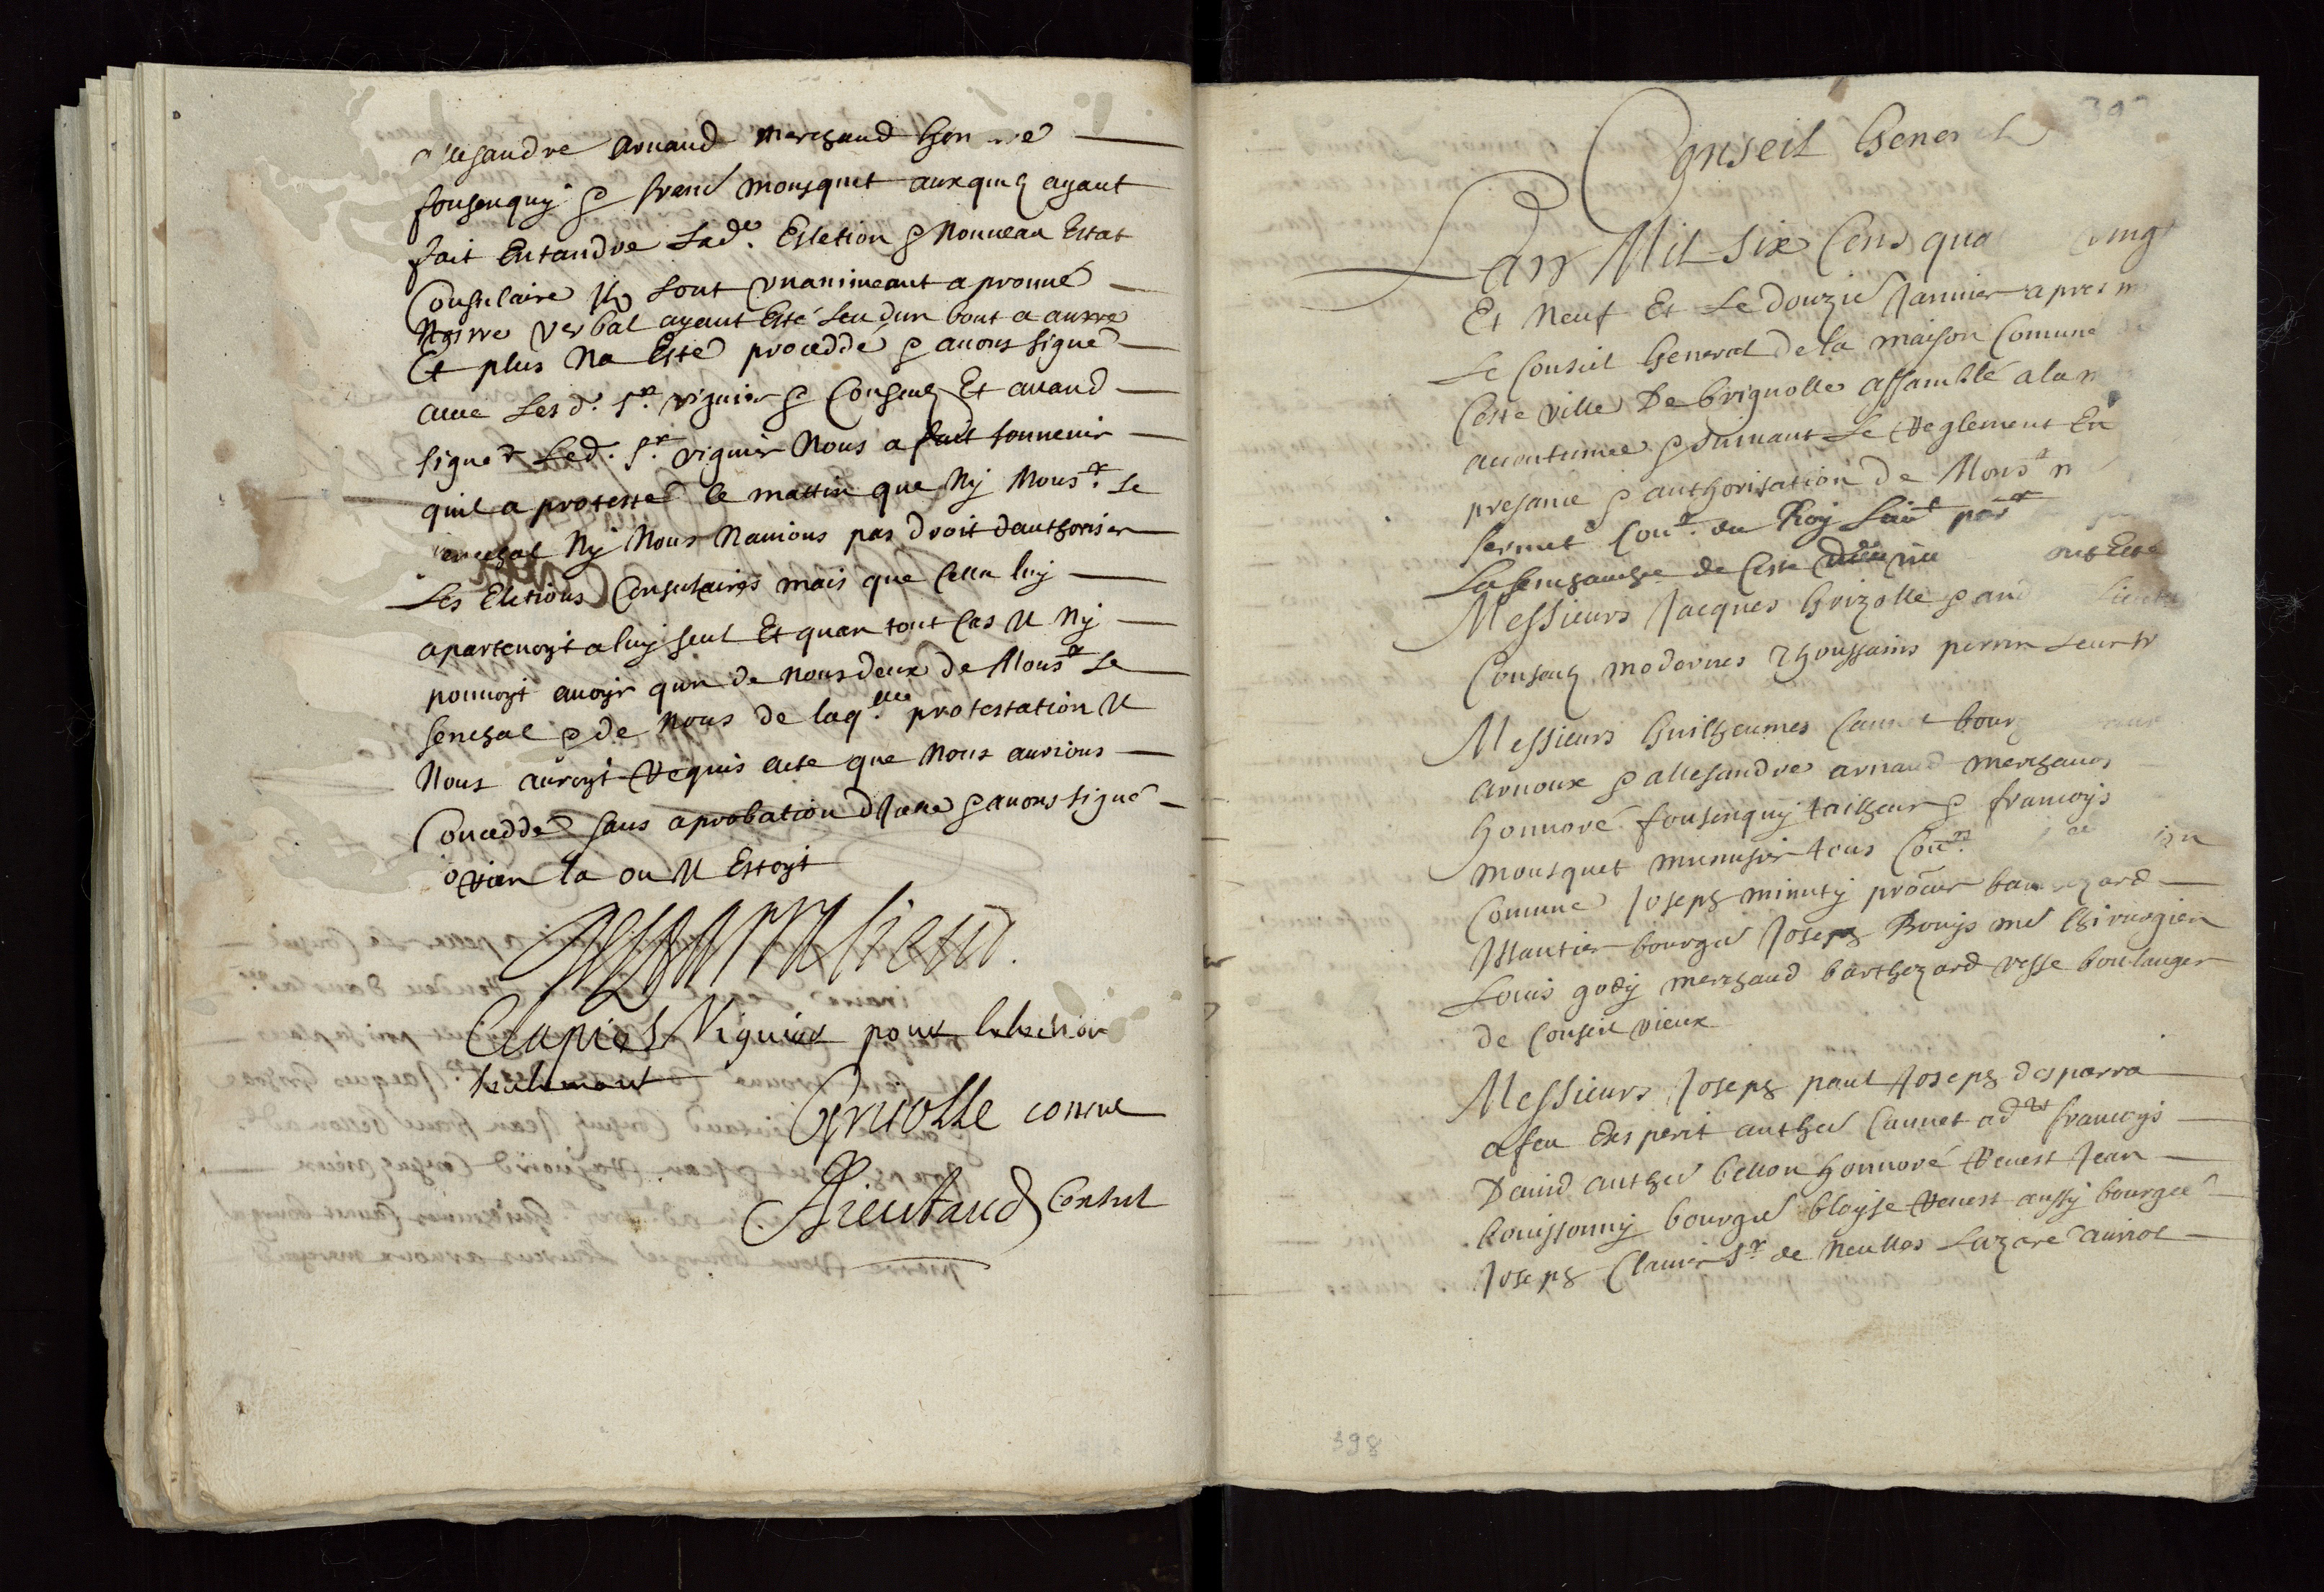 allesandre arnaud merchand honnoré
fousenquy & franc mousquet auxquels ayant
fait Entandre lade. Esletion & Nouveau Estat
Consulaire Ilz sont unanimeant aprouvé
Nostre Verbal ayant Esté leu dun bout a autre
Et plus Na Esté procedde & avons signé
avec Lesd. srs. viguier & Consuls Et avand
signer Led. sr. viguier Nous a fait souvenir
quil a protesté ce mattin que Ny Monsr. Le
senechal Ny Nous Navions pas droit dauthoriser
Les Eletions Consulaires mais que cella luy
apartenoyt a luy seul Et quan tout Cas Il Ny
pouvoyt avoyr quun de nous deux de Monsr Le
senechal & de Nous de laqlle. protestation Il
Nous auroyt Requis acte que Nous aurions
Concedde sans aprobation dicelle & avons signé
a Rian la ou Il Estoyt
Clapiés Viguier pour lelection
seulemant
Grisolle consul
Lieutaud Consul
Conseil General
Lan Mil six Cens qua vingt
Et Neuf Et Le douzie Janvier apres m
Le Conseil General de la maison Comune
Ceste ville De brignolle assamblé a la
acoutumee & suivant Le Reglement En
presance & authorisation de Monsr
sermet Conr. du Roy Lieut parr
La senechaucee de Ceste ville ont Esté
Messieurs Jacques Grizolle & and Lieuta
Consuls modernes Thoussains perrin leur tr
Messieurs Guilheumes Caunet bourg
arnoux & allesandre arnaud merchands
Honnoré fousenquy tailheur & francoys
mousquet munusier tous Conrs.
Comune Joseph minuty procur
Mautier bourgs Joseph Bouys me Chirurgien
Louis gody merchand barthezard vesse boulanger
de Conseil vieux
Messieurs Joseph paul Joseph desparra
a feu Esperit anthe Caunet adt francoys
David anthe bellon Honnoré Venest Jean
bouissonny bourgs bloyse Venest aussy bourgs
Joseph Clavier sr de Neulles Lazare auriol
398